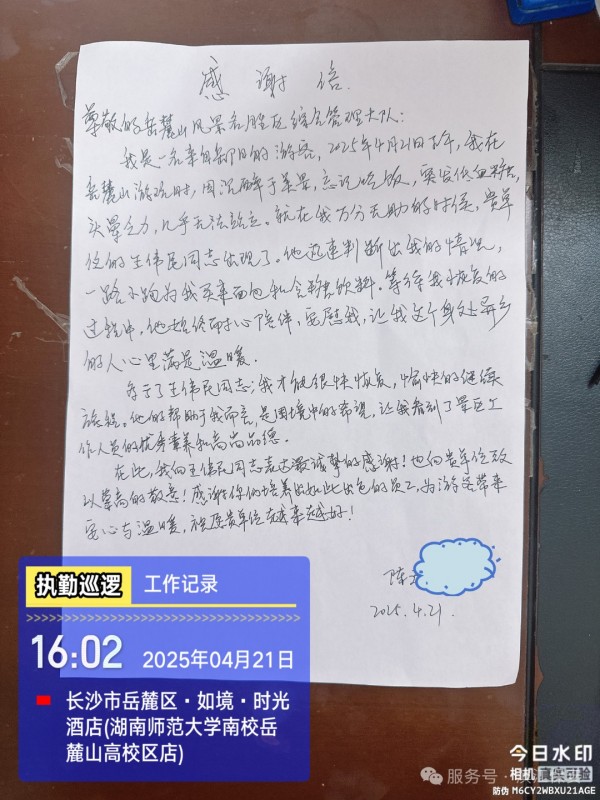 感谢信
尊敬的岳麓山风景名胜区综合管理大队:
我是一名来自邵阳的游客,2025年4月21日下午,我在
岳麓山游玩时,因沉醉于美景,忘记吃饭,突发低血糖,
头晕乏力,几乎无法站立。就在我万分无助的时候,贵单
位的王伟民同志出现了。他迅速判断出我的情况,
一路小跑为我买来面包和含糖饮料。等待我恢复的
过程中,他始终耐心陪伴,安慰我,让我这个身处异乡
的人心里满是温暖.
多亏了王伟民同志,我才能很快恢复,愉快的继续
旅程。他的帮助于我而言,是困境中的希望,让我看到了景区工
作人员的优秀素养和高尚品德.
在此,我向王伟民同志表达最诚挚的感谢!也向贵单位致
以崇高的敬意!感谢你们培养出如此出色的员工,为游客带来
安心与温暖,祝愿贵单位越来越好!
陈
2025.4.21.
执勤巡逻 工作记录
16:02 2025年04月21日
长沙市岳麓区·如境·时光
酒店(湖南师范大学南校岳
麓山高校区店)
今日水印
相机
防伪 M6CY2WBXU21AGE
服务号·